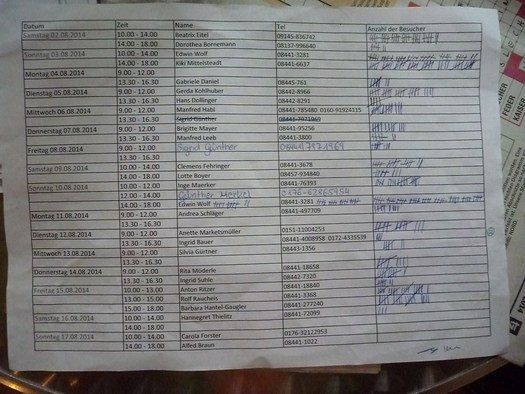 Datum Zeit Name Tel Anzahl der Besucher
Samstag 02.08.2014 10.00 - 14.00 Beatrix Eitel 09145-836742
14.00 - 18.00 Dorothea Bornemann 08137-996640
Sonntag 03.08.2014 10.00 - 14.00 Edwin Wolf 08441-3281
14.00 - 18.00 Kiki Mittelstaedt 08441-6637
Montag 04.08.2014 9.00 - 12.00
13.30 - 16.30 Gabriele Daniel 08445-761
Dienstag 05.08.2014 9.00 - 12.00 Gerda Kohlhuber 08442-8966
13.30 - 16.30 Hans Dollinger 08442-8291
Mittwoch 06.08.2014 9.00 - 12.00 Manfred Habl 08441-785480 0160-91924115
13.30 - 16.30 Sigrid Günther 08441-7971969
Donnerstag 07.08.2014 9.00 - 12.00 Brigitte Mayer 08441-95256
13.30 - 16.30 Manfred Leeb 08441-3800
Freitag 08.08.2014 9.00 - 12.00 Sigrid Günther 08441 7971969
13.30 - 16.30
Samstag 09.08.2014 10.00 - 14.00 Clemens Fehringer 08441-3678
14.00 - 18.00 Lotte Boyer 08457-934840
Sonntag 10.08.2014 10.00 - 12.00 Inge Maerker 08441-76393
12.00 - 14.00 0176-62865954
14.00 - 18.00 Edwin Wolf 08441-3281
Montag 11.08.2014 9.00 - 12.00 Andrea Schlager 08441-497709
13.30 - 16.30
Dienstag 12.08.2014 9.00 - 12.00 Anette Marketsmüller 0151-11004253
13.30 - 16.30 Ingrid Bauer 08441-4008958 0172-4335539
Mittwoch 13.08.2014 9.00 - 12.00 Silvia Gürtner 08443-1356
13.30 - 16.30
Donnerstag 14.08.2014 9.00 - 12.00 Rita Moderle 08441-18658
13.30 - 16.30 Ingrid Suhle 08442-7320
Freitag 15.08.2014 10.00 - 13.00 Anton 08441-18840
13.00 - 15.00 Rolf Raucheis 08441-3368
15.00 - 18.00 Barbara Hantel-Gaugler 08441-277240
Samstag 16.08.2014 10.00 - 14.00 Hannegret Thielitz 08441-72099
14.00 - 18.00
Sonntag 17.08.2014 10.00 - 14.00 Carola Forster 0176-32122953
14.00 - 18.00 Alfed Braun 08441-1022